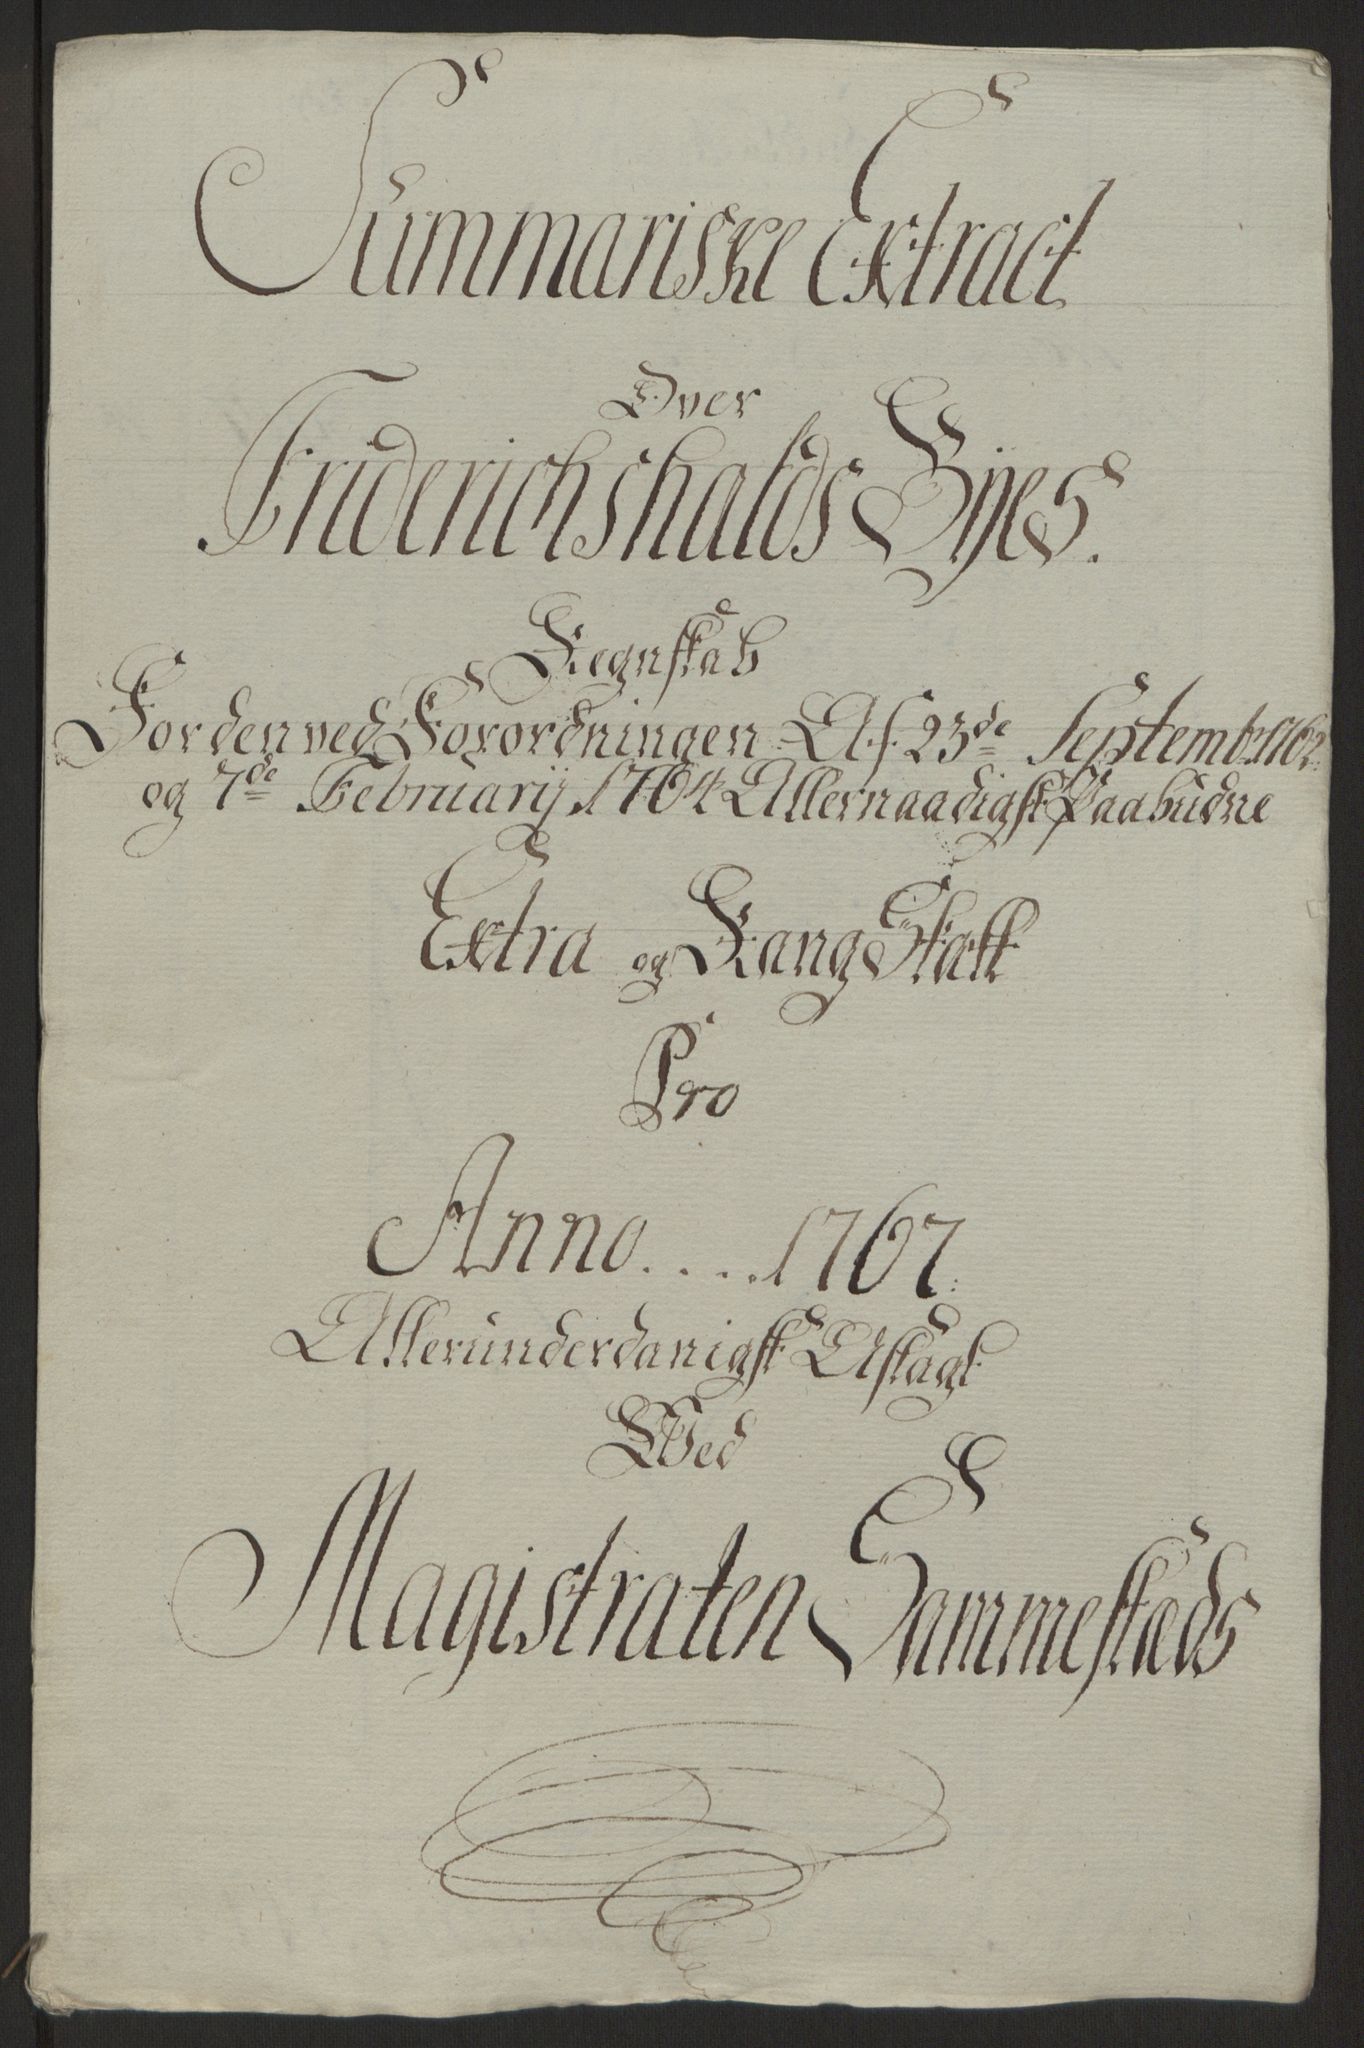 Summariske Extract
Over
Friderichshalds Byes.
Regnskab
For den ved Forordningen Af 23de Septembr: 1762
og 7de Februarij 1764 Allernaadigst Paabudne
Extra og Rang Skatt
Pro
Anno .... 1767.
Allerunderdanigst Aflagt
Wed
Magistraten Sammestæds